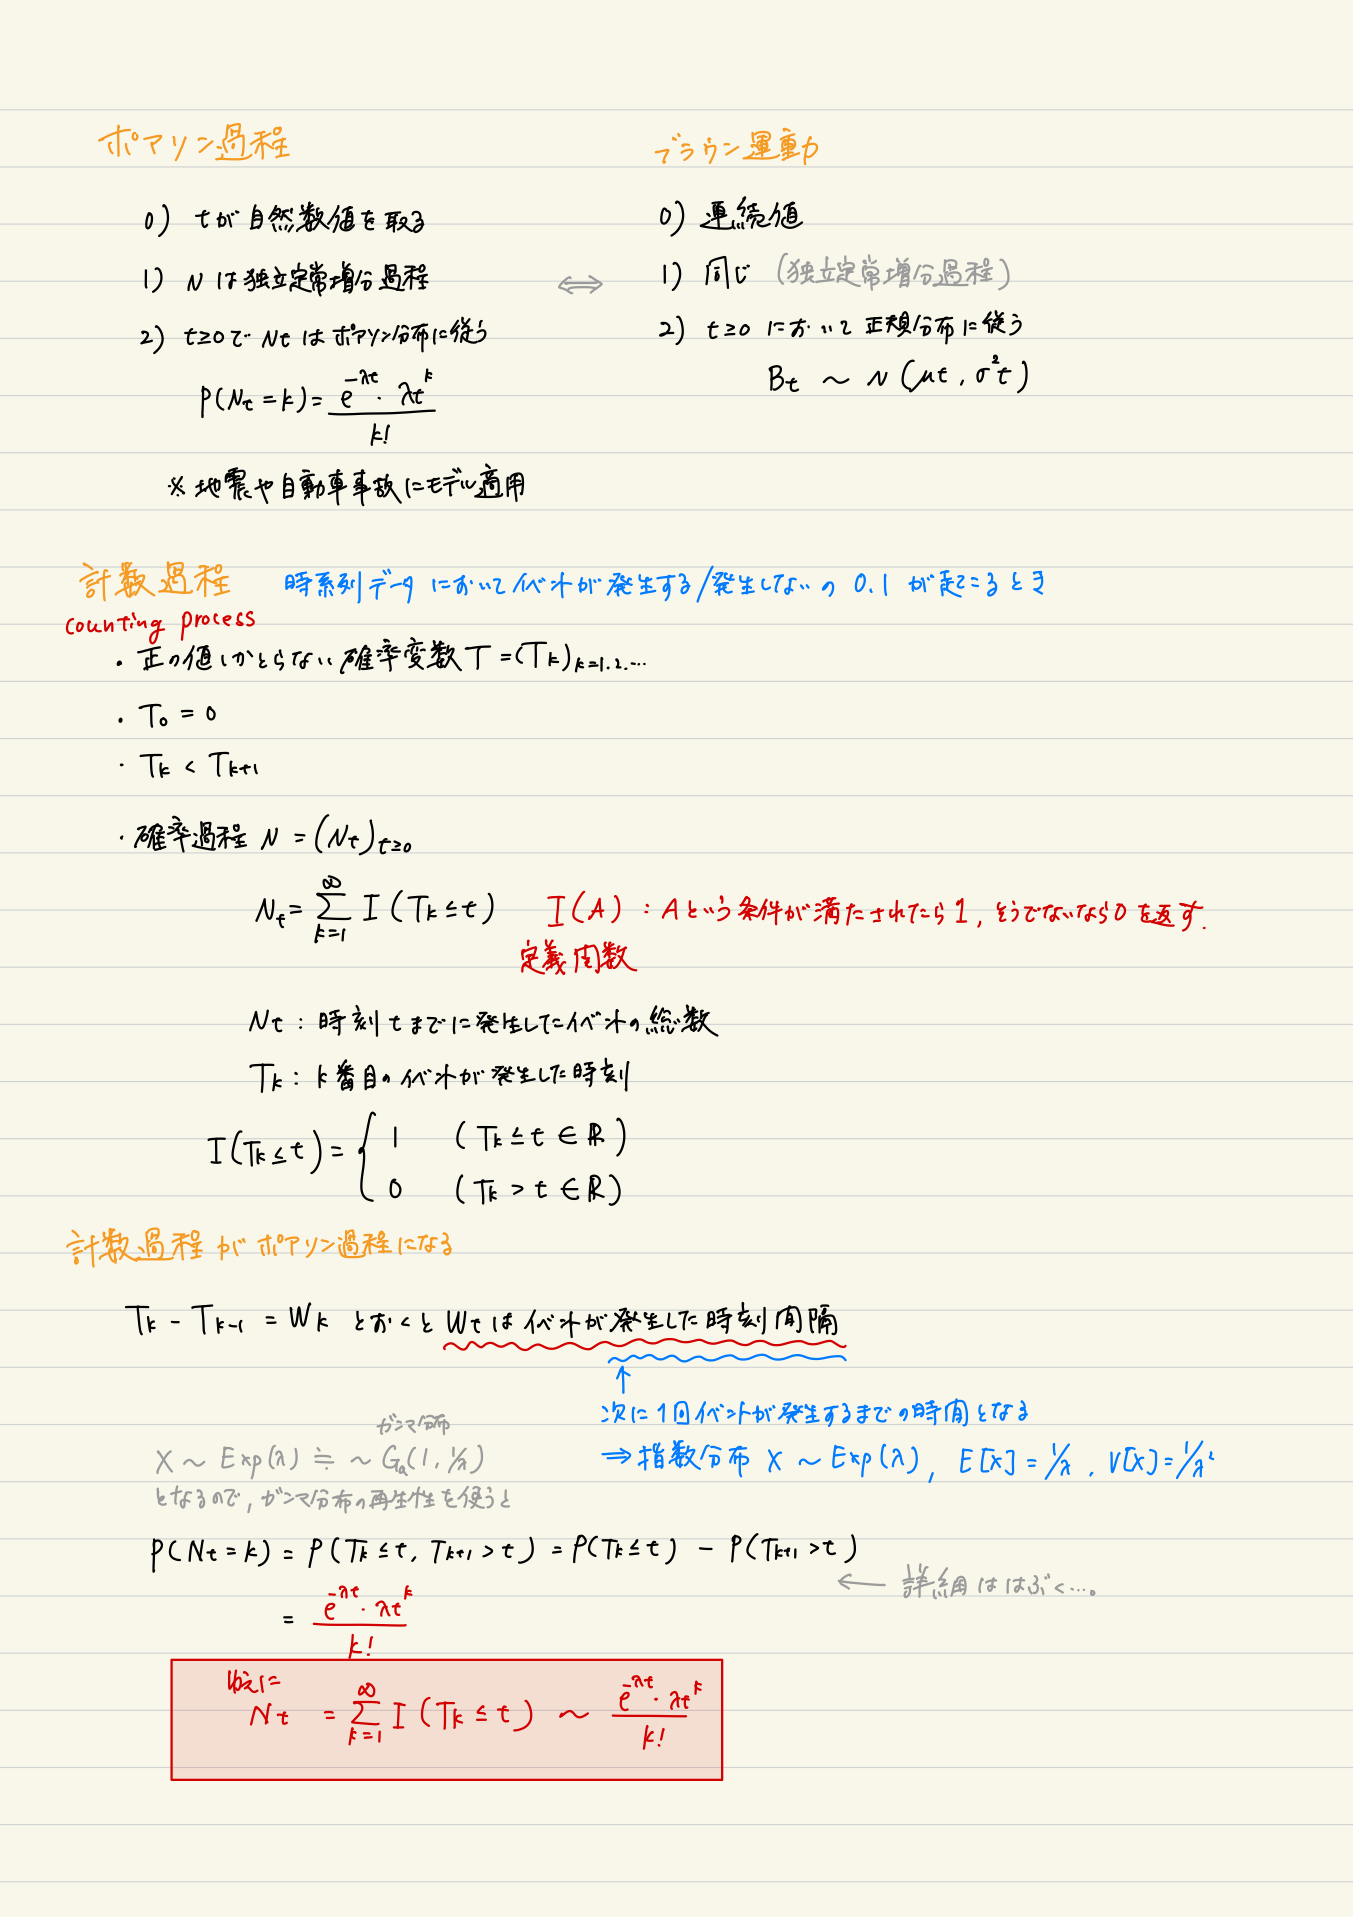 ポアソン過程
0) tが自然数値を取る
1) Nは独立定常増分過程
2) t≥0でNtはポアソン分布に従う
P(Nt=k)= e^-λt・λt^k / k!
※ 地震や自動車事故にモデル適用
⇔
ブラウン運動
0) 連続値
1) 同じ (独立定常増分過程)
2) t≥0において正規分布に従う
Bt ~ N(μt, σ²t)
計数過程 時系列データにおいてイベントが発生する/発生しないの0.1が起こるとき
counting process
・正の値しかとらない確率変数T=(Tk)k=1.2.…
・T0 = 0
・Tk < Tk+1
・確率過程 N = (Nt)t≥0
Nt= ∑_{k=1}^{∞} I(Tk≤t) I(A):Aという条件が満たされたら1, そうでないなら0を返す.
定義関数
Nt:時刻tまでに発生したイベントの総数
Tk:k番目のイベントが発生した時刻
I(Tk≤t)= { 1 (Tk≤t∈R)
0 (Tk>t∈R)
計数過程がポアソン過程になる
Tk - Tk-1 = Wk とおくと Wtはイベントが発生した時刻間隔
↑
次に1回イベントが発生するまでの時間となる
⇒指数分布 X ~ Exp(λ), E[X]=1/λ. V[X]=1/λ²
ガンマ分布
X ~ Exp(λ) ≒ ~ Ga(1, 1/λ)
となるので, ガンマ分布の再生性を使うと
P(Nt=k) = P(Tk≤t, Tk+1>t) = P(Tk≤t) - P(Tk+1>t)
← 詳細ははぶく…。
= e^-λt・λt^k / k!
ゆえに
Nt = ∑_{k=1}^{∞} I(Tk≤t) ~ e^-λt・λt^k / k!